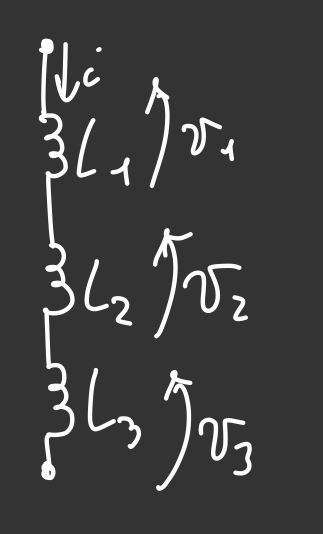 i
L1 v1
L2 v2
L3 v3